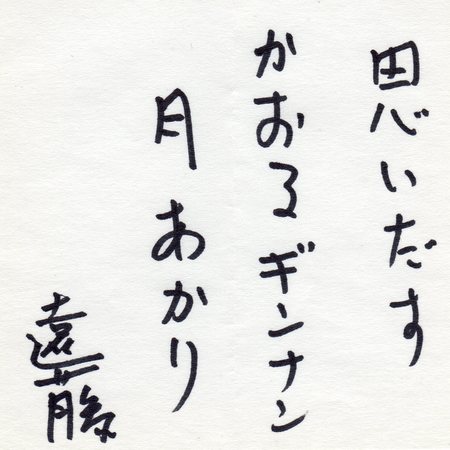 思いだす
かおるギンナン
月あかり
遠藤